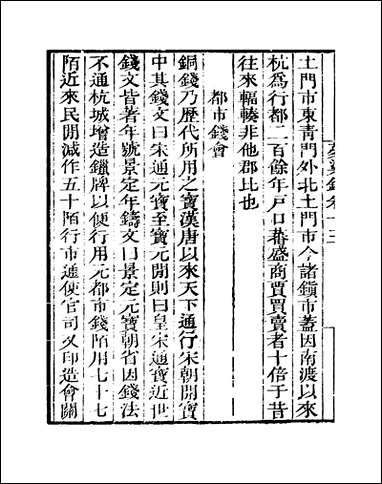 夢粱錄卷十三
土門市東青門外北土門市今諸鎮市蓋因南渡以來
杭爲行都二百餘年戶口蕃盛商賈買賣者十倍于昔
往來輻輳非他郡比也
都市錢會
銅錢乃歷代所用之寶漢唐以來天下通行宋朝開寶
中其錢文曰宋通元寶至寶元間則曰皇宋通寶近世
錢文皆著年號景定年鑄文曰景定元寶朝省因錢法
不通杭城增造鑞牌以便行用元都市錢陌用七十七
陌近來民間減作五十陌行市通使官司又印造會關